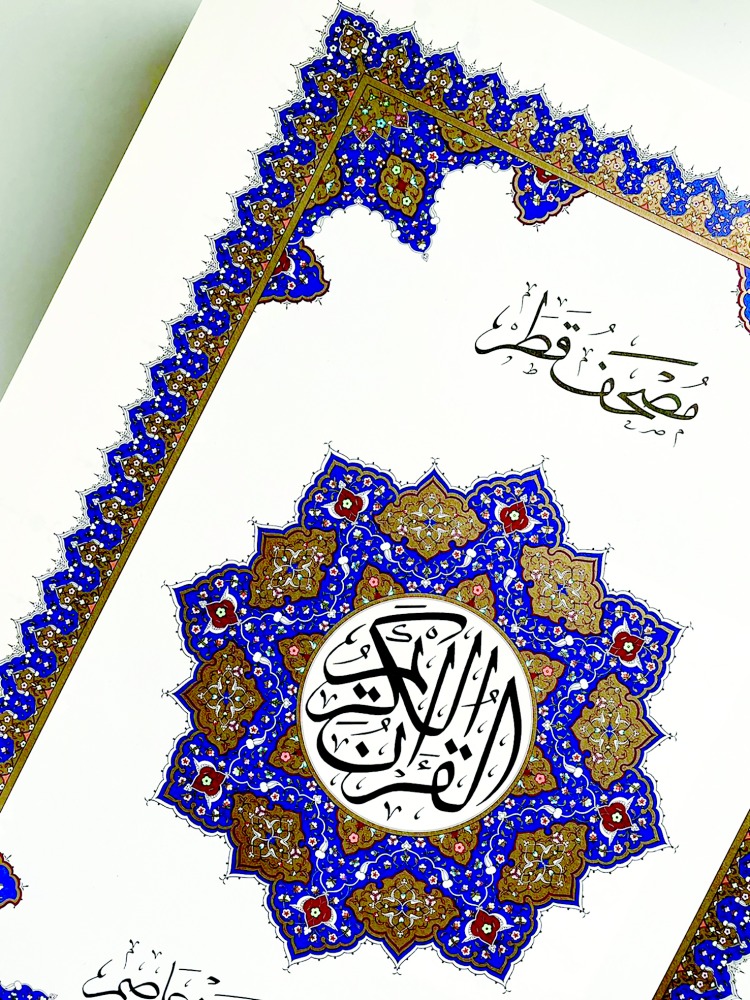 مُصْحَفُ قَطَر
القُرْءَانُ الكَرِيمُ